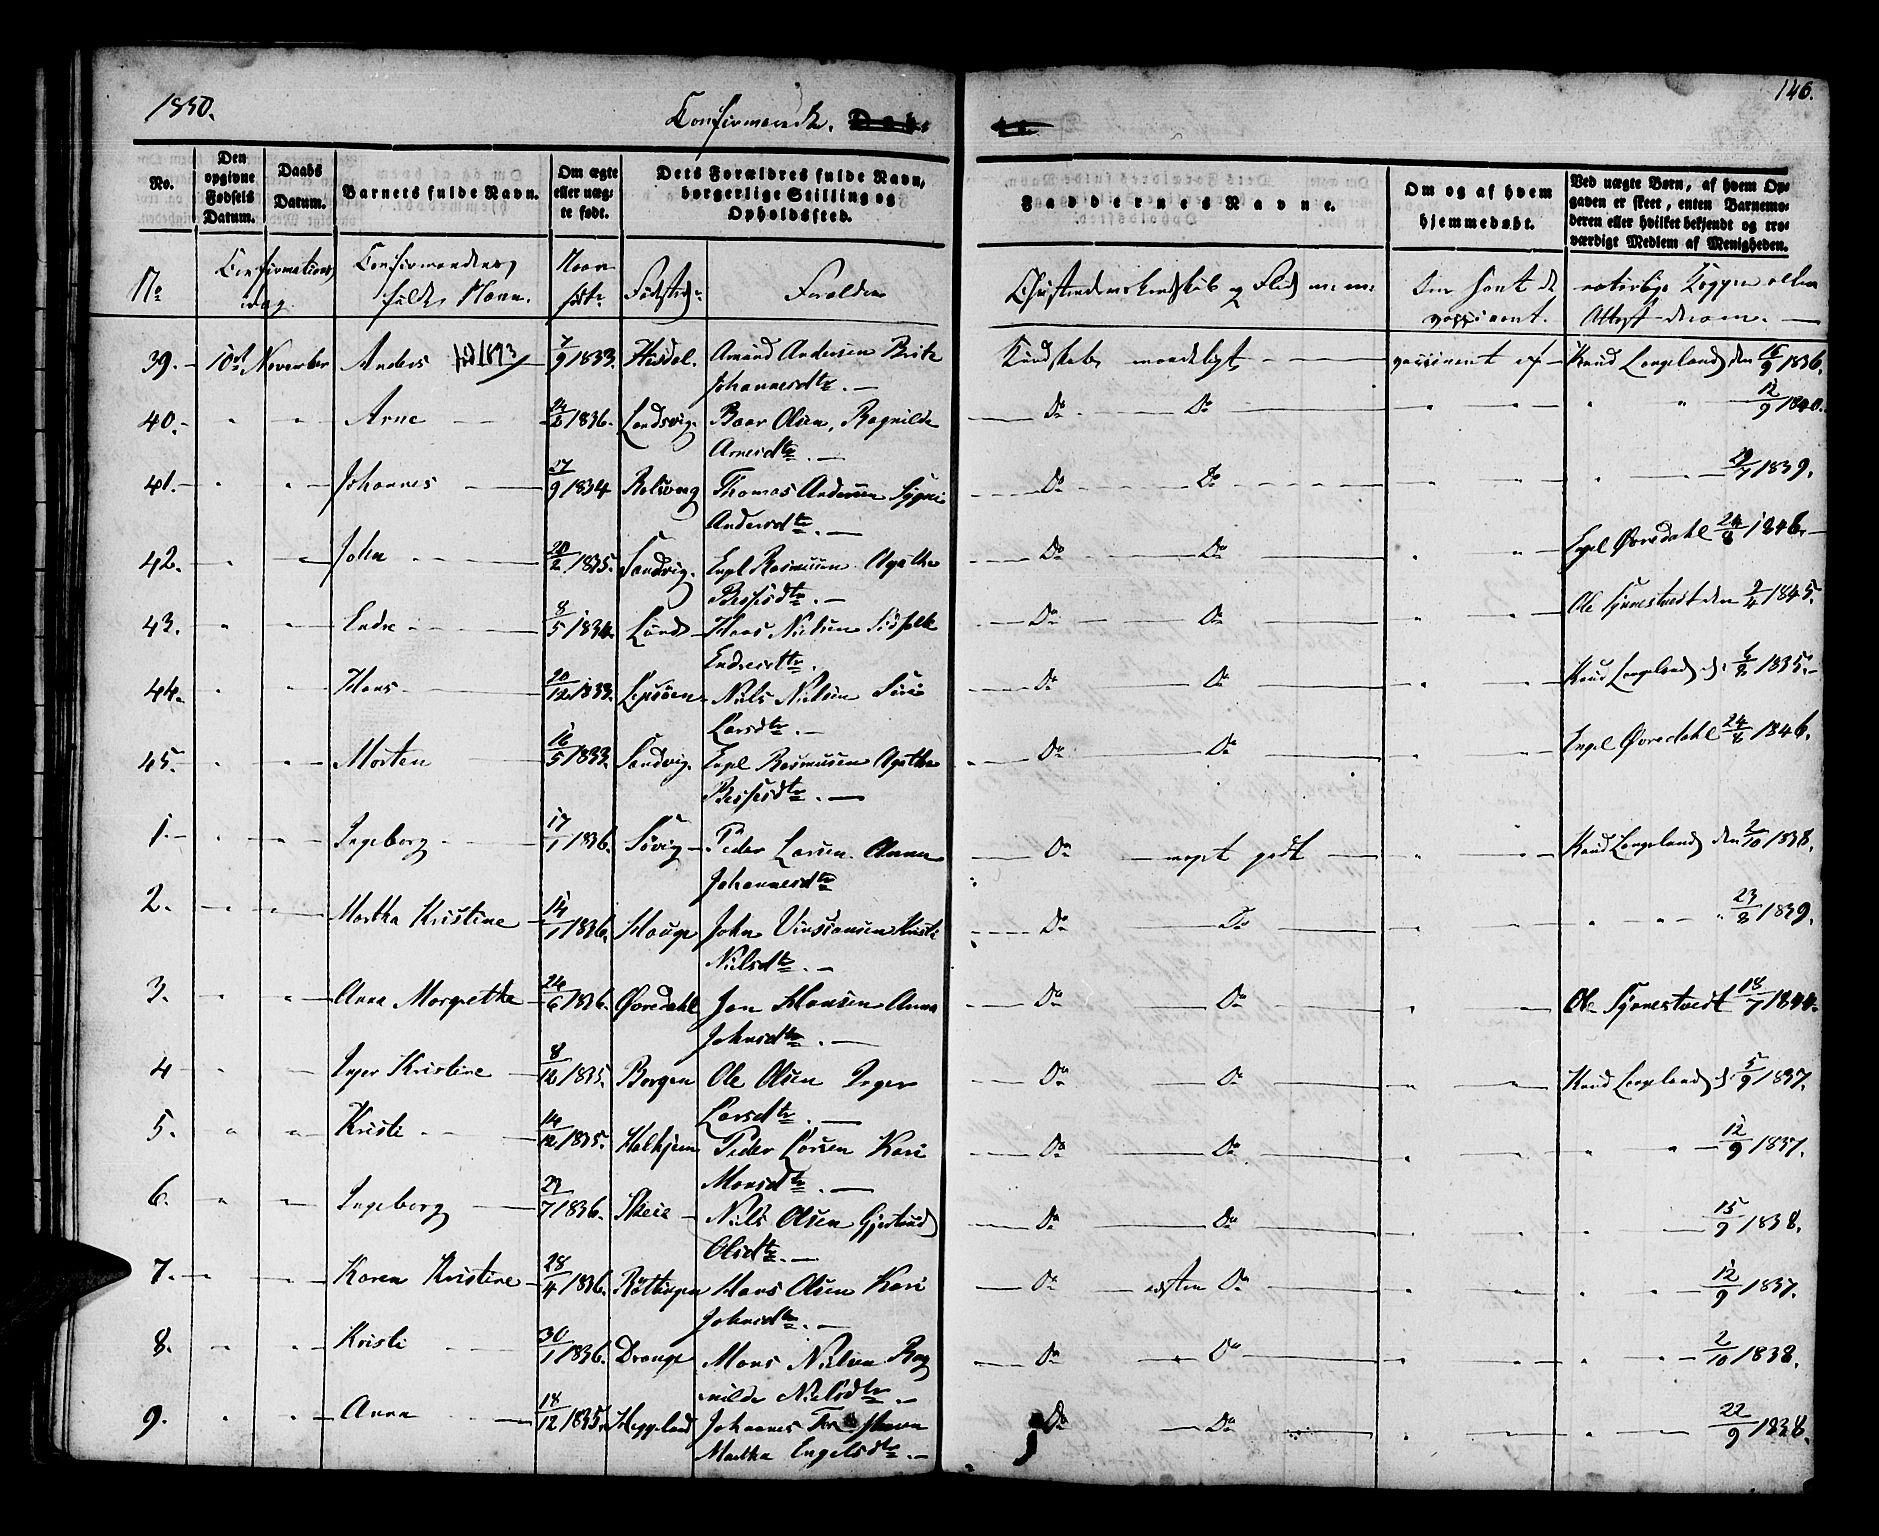 1850. Confirmerede. Døbte 146.
No. Den opgivne Fødsels Datum. Daabs Datum. Barnets fulde Navn. Om ægte eller uægte født. Dets Forældres fulde Navn, borgerlige Stilling og Opholdssted. Faddernes Navne. Om og af hvem hjemmedøbt. Ved uægte Børn, af hvem Opgaven er skeet, enten Barnemoderen eller hvilket bekjendt og troværdigt Medlem af Menigheden.
No Confirmations dag Confirmandens fulde Navn. Naar født Fødested Forældre Christendomskundskab og Flid m: m: Om havt de naturlige Kopper eller
vaccineret. Attest derom.
39. 10de November Anders 7/9 1833. Amund Andersen Brite Kundskab maadeligt vaccineret af Knud Langeland den 15/9 1836.
Johannesdtr.
40. " " Arne 24/2 1836. Landsvig Baar Olsen, Ragnilde Do Do " " " " 12/9 1840.
Arnesdtr.
41. " " Johannes 27/9 1834 Rolsvog Thomas Andersen Do Do " " " 29/7 1839.
Andersdtr.
42. " " John 20/2 1835. Sandvig. Engel Rasmusen Agathe Do Do " " Engel Øvredahl 24/8 1846.
43. " " Endre 8/5 1834. Lunde Hans Nielsen Do Do Ole Tynnestvedt den 2/4 1845.
Endresdtr.
44. " " Hans 20/12 1833. Lepsøen Niels Nielsen Siri Do Do " " Knud Langeland d: 6/8 1835.
Larsdtr.
45. " " Morten 16/5 1833. Sandvig. Engel Rasmusen Agathe Do Do " " Engel Øvredahl 24/8 1846.
1. " " Ingeborg 17/1 1836. Søvig Peder Larsen Anna Do meget godt " " Knud Langeland den 2/10 1838.
Johannesdtr
2. " " Martha Kristine 14/1 1836. Hauge John Kristi Do Do " " 23/8 1839.
Nielsdtr.
3. " " Anna Margrethe 24/6 1836. Øvredahl Jon Hansen Anna Do Do " " Ole Tynnestvedt 18/7 1844.
Johnsdtr.
4 " " Inger Kristine 8/12 1835. Borgen Ole Olsen Inger Do Do " " Knud Langeland d: 5/9 1837.
Larsdtr.
5. " " Kristi 14/12 1835. Halhjem Peder Larsen Kari Do Do " " " " 12/9 1837.
Monsdtr.
6. " " Ingeborg 27/7 1836. Skeie Niels Olsen Gjertrud Do Do " " " " 15/9 1838.
Olsdtr.
7. " " Karen Kristine 28/4 1836. Røttingen Hans Olsen Kari Do næsten Do " " " " 12/9 1837.
Johnsdtr.
8. " " Kristi 30/1 1836. Drange Mons Nielsen Rag Do Do " " " " 2/10 1838.
nilde Nielsdtr.
9. " " Anna 18/12 1835. Heggland Johannes Do Do " " " 22/9 1838.
Martha Engelsdtr.